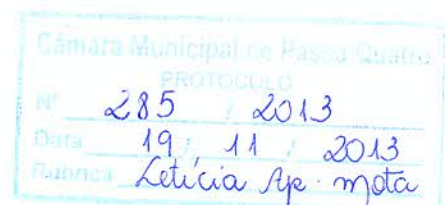 Câmara Municipal de Passa Quatro
PROTOCOLO
Nº 285 / 2013
Data 19 / 11 / 2013
Rubrica Letícia Ap. mota